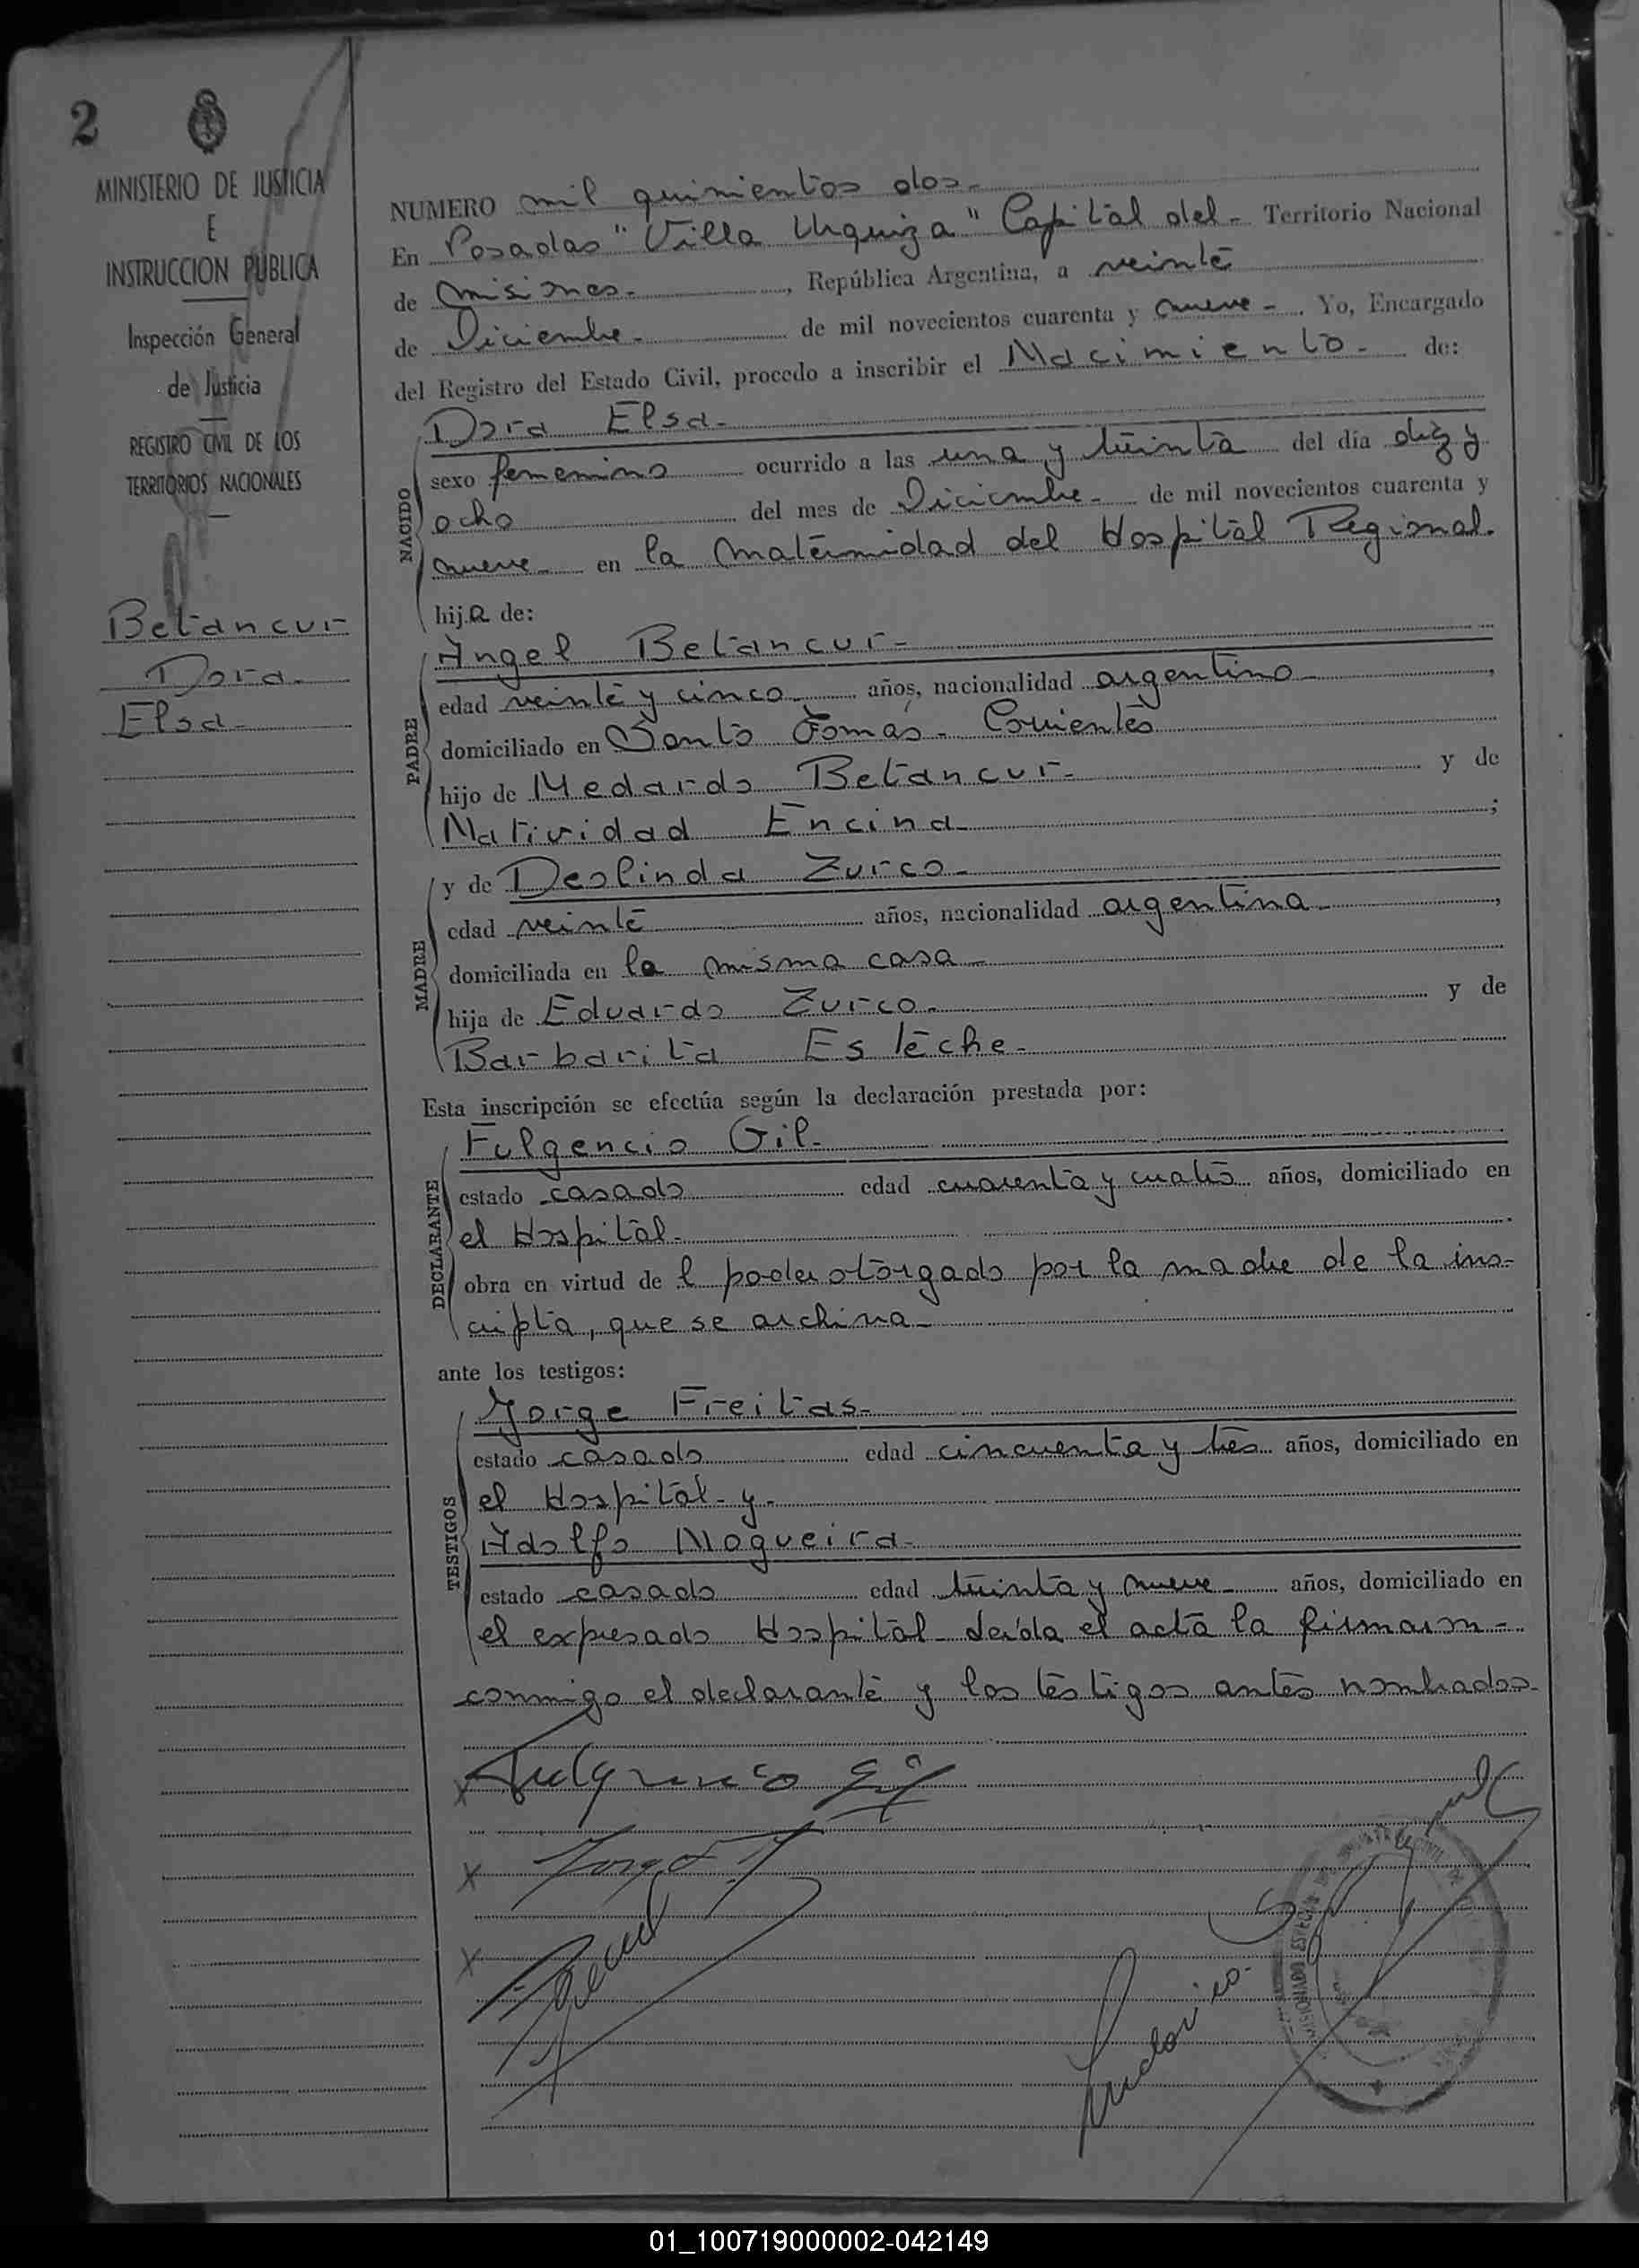 2
MINISTERIO DE JUSTICIA
E
INSTRUCCION PUBLICA
Inspección General
de Justicia
REGISTRO CIVIL DE LOS
TERRITORIOS NACIONALES
Betancur
Dora
Elsa-
NUMERO mil quinientos dos-
En Posadas "Villa Urquiza" Capital del- Territorio Nacional
de Misiones-, República Argentina, a veinte
de Diciembre- de mil novecientos cuarenta y nueve-. Yo, Encargado
del Registro del Estado Civil, procedo a inscribir el Nacimiento- de:
NACIDO
Dora Elsa-
sexo femenino ocurrido a las una y treinta del día diez y
ocho del mes de Diciembre- de mil novecientos cuarenta y
nueve- en la Maternidad del Hospital Regional.
hija de:
PADRE
Angel Betancur-
edad veinte y cinco- años, nacionalidad argentino-,
domiciliado en Santo Tomás- Corrientes
hijo de Medardo Betancur- y de
Natividad Encina-;
MADRE
y de Deolinda Zurco-
edad veinte años, nacionalidad argentina-,
domiciliada en la misma casa-
hija de Eduardo Zurco- y de
Barbarita Esteche-
Esta inscripción se efectúa según la declaración prestada por:
DECLARANTE
Fulgencio Gil-
estado casado edad cuarenta y cuatro años, domiciliado en
el Hospital-
obra en virtud de l poder otorgado por la madre de la ins-
cripta, que se archiva-
ante los testigos:
TESTIGOS
Jorge Freitas-
estado casado edad cincuenta y tres años, domiciliado en
el Hospital- y-
Adolfo Nogueira-
estado casado edad treinta y nueve- años, domiciliado en
el expresado Hospital- Leida el acta la firmaron-
conmigo el declarante y los testigos antes nombrados-
Fulgencio Gil
01_100719000002-042149